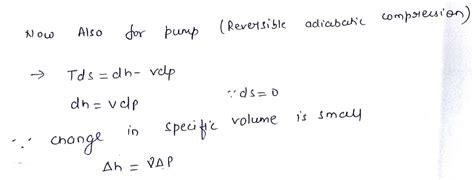 Now Also for pump (Reversible adiabatic compression)
→ Tds = dh - vdp
dh = vdp ∵ds=0
∵ change in specific volume is small
Δh = VΔP